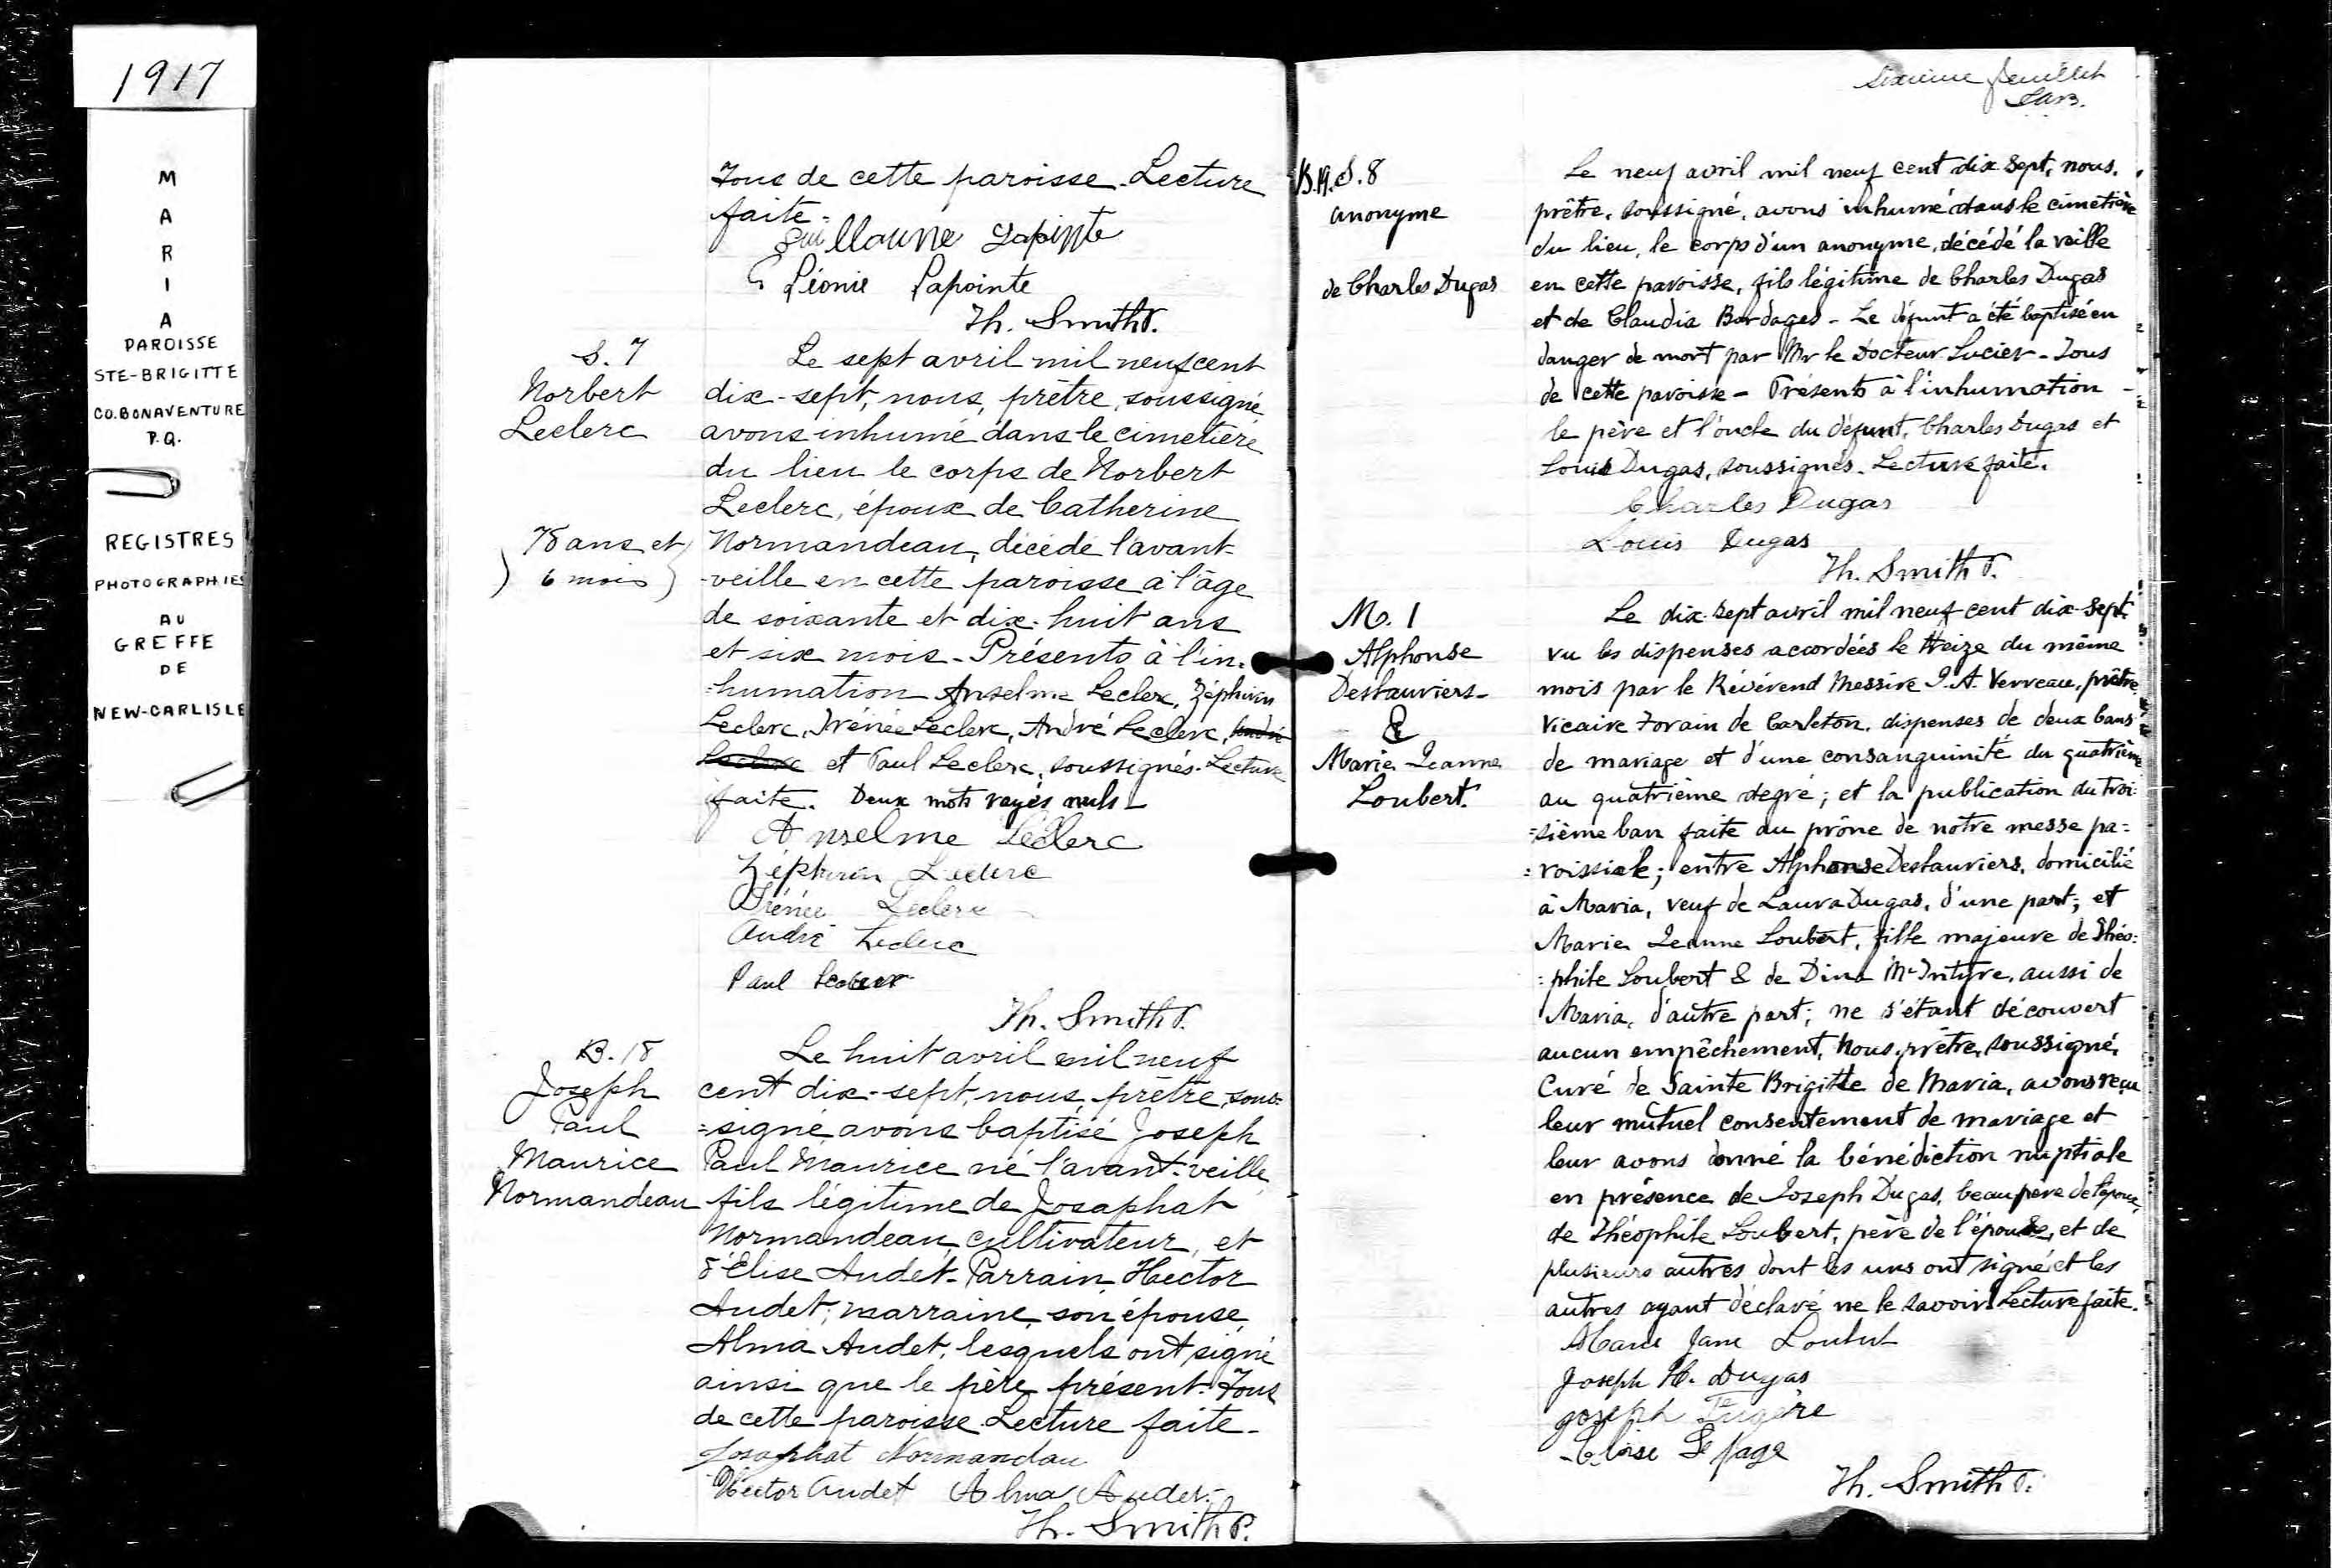 1917
M
A
R
I
A
PAROISSE
STE-BRIGITTE
CO. BONAVENTURE
P.Q.
REGISTRES
PHOTOGRAPHIES
AU
GREFFE
DE
NEW-CARLISLE
Tous de cette paroisse. Lecture
faite.
Guillaume Lapointe
Léonie Lapointe
Th. Smith P.
S. 7
Norbert
Leclerc
78 ans et
6 mois
Le sept avril mil neuf cent
dix-sept, nous, prêtre, soussigné
avons inhumé dans le cimetière
du lieu le corps de Norbert
Leclerc, époux de Catherine
Normandeau, décédé l'avant-
-veille en cette paroisse à l'âge
de soixante et dix-huit ans
et six mois - Présents à l'in=
=humation Anselme Leclerc, Zéphirin
Leclerc, Irénée Leclerc, André Leclerc, André
Leclerc et Paul Leclerc, soussignés. Lecture
faite. Deux mots rayés nuls -
Anselme Leclerc
Zéphirin Leclerc
Irénée Leclerc
André Leclerc
Paul Leclerc
Th. Smith P.
B. 18
Joseph
Paul
Maurice
Normandeau
Le huit avril mil neuf
cent dix-sept, nous, prêtre, sous=
=signé avons baptisé Joseph
Paul Maurice né l'avant-veille,
fils légitime de Josaphat
Normandeau, cultivateur, et
d'Elise Audet - Parrain Hector
Audet; marraine, son épouse,
Alma Audet, lesquels ont signé
ainsi que le père présent. Tous
de cette paroisse. Lecture faite -
Josaphat Normandau
Hector Audet Alma Audet
Th. Smith P.
Sixième feuillet
B. 19. S. 8
anonyme
de Charles Dugas
Le neuf avril mil neuf cent dix sept, nous,
prêtre, soussigné, avons inhumé dans le cimetière
du lieu, le corps d'un anonyme, décédé la veille
en cette paroisse, fils légitime de Charles Dugas
et de Claudia Bordages - Le défunt a été baptisé en
danger de mort par Mr le Docteur Lucier - Tous
de cette paroisse - Présents à l'inhumation -
le père et l'oncle du défunt, Charles Dugas et
Louis Dugas, soussignés. Lecture faite.
Charles Dugas
Louis Dugas
Th. Smith P.
M. 1
Alphonse
Deslauriers -
&
Marie Jeanne
Loubert.
Le dix-sept avril mil neuf cent dix-sept,
vu les dispenses accordées le treize du même
mois par le Révérend Messire J. A. Verreau, prêtre
Vicaire Forain de Carleton, dispenses de deux bans
de mariage et d'une consanguinité du quatrième
au quatrième degré; et la publication du troi=
=sième ban faite au prône de notre messe pa=
=roissiale; entre Alphonse Deslauriers, domicilié
à Maria, veuf de Laura Dugas, d'une part; et
Marie Jeanne Loubert, fille majeure de Théo=
=phile Loubert & de Dina McIntyre, aussi de
Maria, d'autre part; ne s'étant découvert
aucun empêchement, Nous, prêtre, soussigné,
Curé de Sainte Brigitte de Maria, avons reçu
leur mutuel consentement de mariage et
leur avons donné la bénédiction nuptiale
en présence de Joseph Dugas, beau père de l'époux,
de Théophile Loubert, père de l'épouse, et de
plusieurs autres dont les uns ont signé et les
autres ayant déclaré ne le savoir. Lecture faite.
Marie Jane Loubert
Joseph H. Dugas
Joseph
Eloise Le page
Th. Smith P.